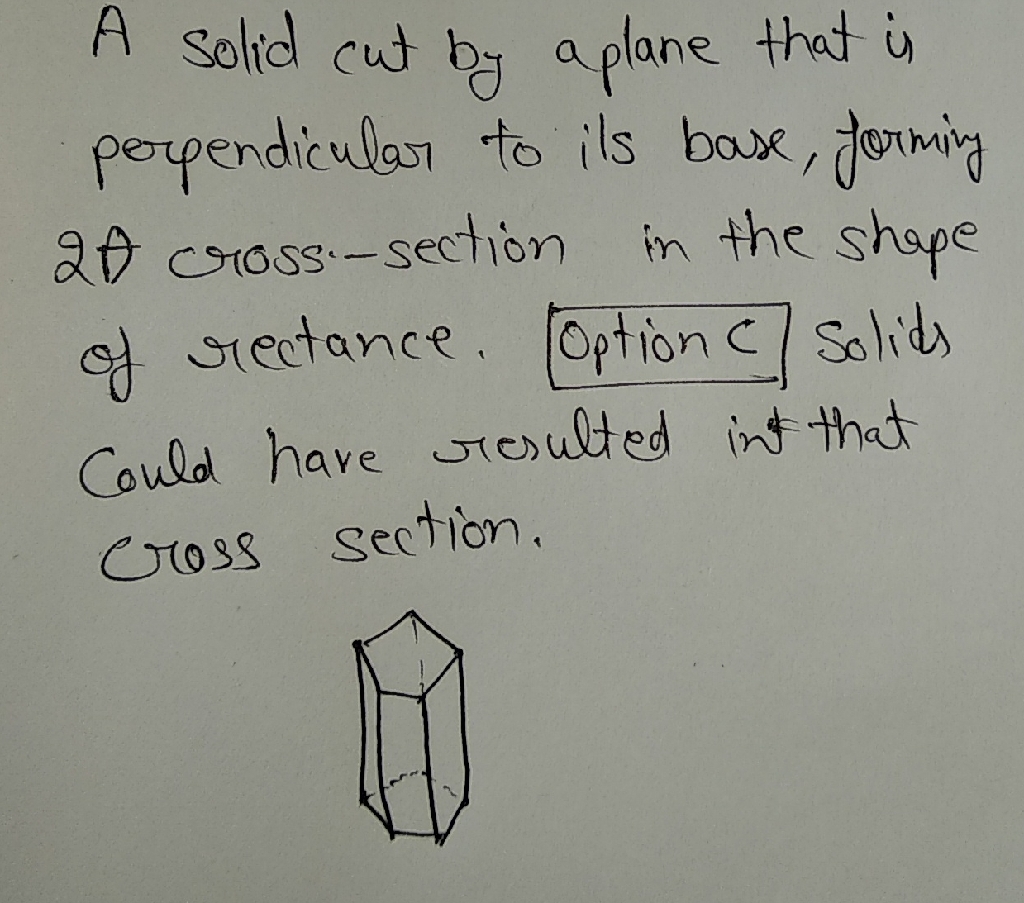 A solid cut by a plane that is
perpendicular to its base, forming
2D cross-section in the shape
of rectance. Option C Solids
Could have resulted int that
cross section.